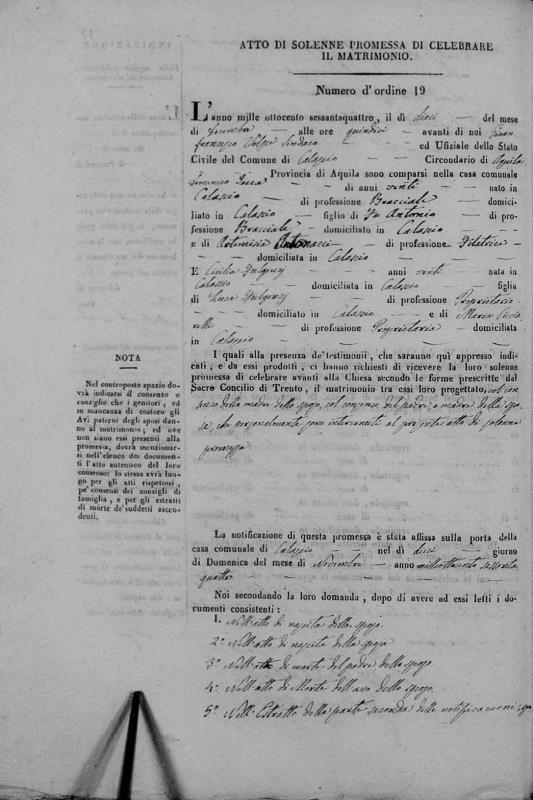 ATTO DI SOLENNE PROMESSA DI CELEBRARE
IL MATRIMONIO.
Numero d'ordine 19
L'anno mille ottocento sessantaquattro, il dì dieci del mese
di alle ore quindici avanti di noi
francesco Volpe Sindaco ed Ufiziale dello Stato
Civile del Comune di Calascio Circondario di Aquila
Provincia di Aquila sono comparsi nella casa comunale
di anni venti nato in
Calascio di professione Bracciale domici-
liato in Calascio figlio di fu Antonio di pro-
fessione Bracciale domiciliato in Calascio
e di Artemisia di professione Filatrice
domiciliata in Calascio
E Cecilia Fulgenzj anni venti nata in
Calascio domiciliata in Calascio figlia
di Luca Fulgenzj di professione Proprietario
domiciliato in Calascio e di Maria
di professione Proprietaria domiciliata
in Calascio
I quali alla presenza de' testimonii, che saranno quì appresso indi-
cati, e da essi prodotti, ci hanno richiesti di ricevere la loro solenne
promessa di celebrare avanti alla Chiesa secondo le forme prescritte dal
Sacro Concilio di Trento, il matrimonio tra essi loro progettato, col con-
senso della madre dello sposo, col consenso del padre, e madre della spo-
sa, che personalmente sono intervenuti al presente atto di solenne
promessa
NOTA
Nel controposto spazio do-
vrà indicarsi il consento o
consiglio che i genitori, ed
in mancanza di costoro gli
Avi paterni degli sposi danno
al matrimonio; ed ove
non siano essi presenti alla
promessa, dovrà menzionar-
si nell'elenco dei documen-
ti l'atto autentico del loro
consenso: lo stesso avrà luo-
go per gli atti rispettosi,
pe' consensi dei consigli di
famiglia, e per gli estratti
di morte de' suddetti ascen-
denti.
La notificazione di questa promessa è stata affissa sulla porta della
casa comunale di Calascio nel dì dieci giorno
di Domenica del mese di Novembre anno milleottocento sessanta
quattro
Noi secondando la loro domanda, dopo di avere ad essi letti i do-
cumenti consistenti:
1. Nell'atto di nascita dello sposo
2.° Nell'atto di nascita della sposa
3.° Nell'atto di morte del padre dello sposo
4.° Nell'atto di Morte dell'avo dello sposo
5.° Nell'Estratto della parte seconda delle notificazioni